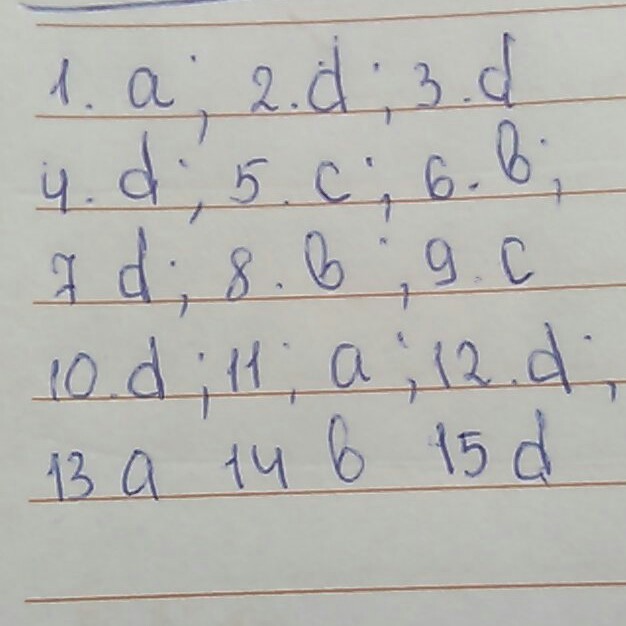 1. a; 2. d; 3. d
4. d; 5. c; 6. b;
7 d; 8. b; 9. c
10. d; 11; a; 12. d;
13 a 14 b 15 d